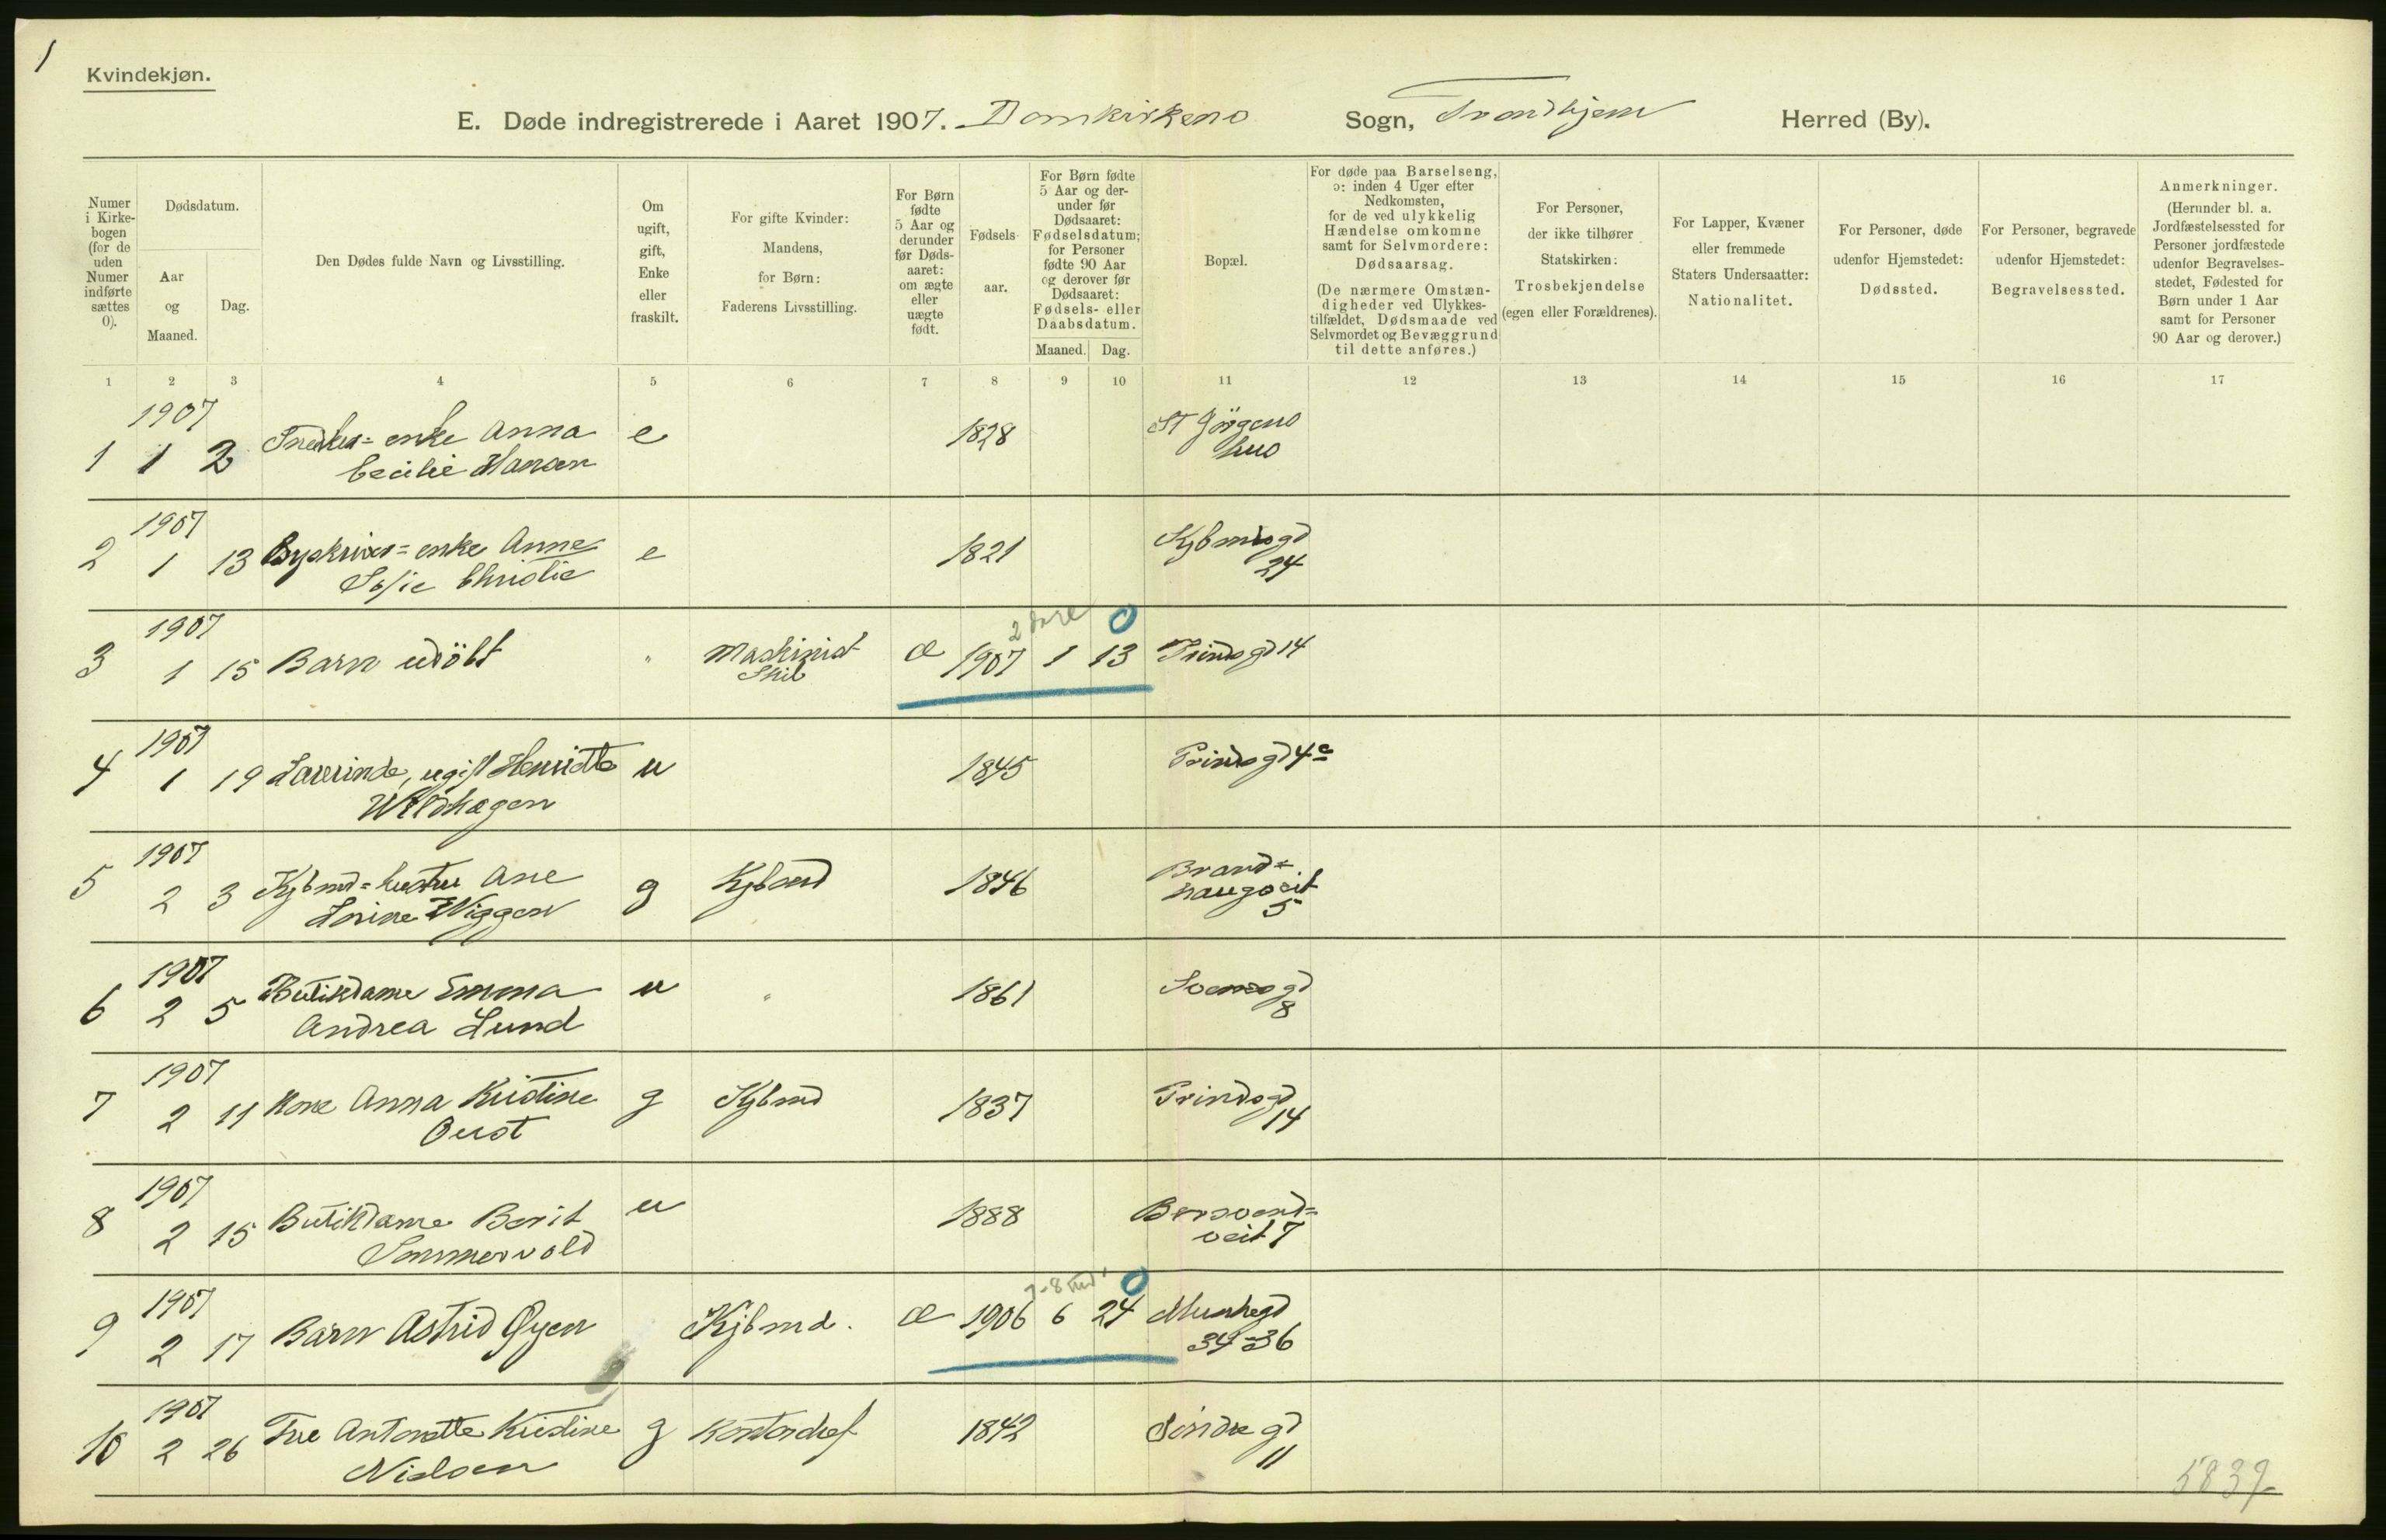 1
Kvindekjøn.
E. Døde indregistrerede i Aaret 1907. Domkirkens Sogn, Trondhjem Herred (By).
Numer
i Kirke-
bogen
(for de
uden
Numer
indførte
sættes
0).
Dødsdatum.
Aar
og
Maaned.
Dag.
Den Dødes fulde Navn og Livsstilling.
Om
ugift,
gift,
Enke
eller
fraskilt.
For gifte Kvinder:
Mandens,
for Børn:
Faderens Livsstilling.
For Børn
fødte
5 Aar og
derunder
før Døds-
aaret:
om ægte
eller
uægte
født.
Fødsels-
aar.
For Børn fødte
5 Aar og der-
under før
Dødsaaret:
Fødselsdatum;
for Personer
fødte 90 Aar
og derover før
Dødsaaret:
Fødsels- eller
Daabsdatum.
Maaned. Dag.
Bopæl.
For døde paa Barselseng,
ɔ: inden 4 Uger efter
Nedkomsten,
for de ved ulykkelig
Hændelse omkomne
samt for Selvmordere:
Dødsaarsag.
(De nærmere Omstæn-
digheder ved Ulykkes-
tilfældet, Dødsmaade ved
Selvmordet og Bevæggrund
til dette anføres.)
For Personer,
der ikke tilhører
Statskirken:
Trosbekjendelse
(egen eller Forældrenes).
For Lapper, Kvæner
eller fremmede
Staters Undersaatter:
Nationalitet.
For Personer, døde
udenfor Hjemstedet:
Dødssted.
For Personer, begravede
udenfor Hjemstedet:
Begravelsessted.
Anmerkninger.
(Herunder bl. a.
Jordfæstelsessted for
Personer jordfæstede
udenfor Begravelses-
stedet, Fødested for
Børn under 1 Aar
samt for Personer
90 Aar og derover.)
1 2 3 4 5 6 7 8 9 10 11 12 13 14 15 16 17
1907
1 1 2 Snedker= enke Anna e 1828 St Jörgens
Cecilie Hansen hus
1907
2 1 13 Byskriver= enke Anne e 1821 Kjbmdsgd
Sofie Christie 24
1907 0
3 1 15 Barn udöbt " Maskinist æ 1907 1 13 Prindsgd 14
1907
4 1 19 ugift Henriette u 1845 Prindsgd 4c
Wildhagen
1907
5 2 3 Kjbmd=hustru Ane g Kjbmd 1846 Brand=
Lorine Wiggen haugveit
5
1907
6 2 5 Butikdame Emma u " 1861 Svensgd
Andrea Lund 8
1907
7 2 11 Kone Anna Kristine g Kjbmd 1837 Prindsgd
Oust 14
1907
8 2 15 Butikdame Berit u 1888 Bersvend=
Sommervold veit 7
1907 7-8 md 0
9 2 17 Barn Astrid Øyen Kjbmd. æ 1906 6 24 Munkegd
34-36
1907
10 2 26 Fru Antonette Kristine g Kontorchef 1842 Söndre gd
Nielsen 11
5839